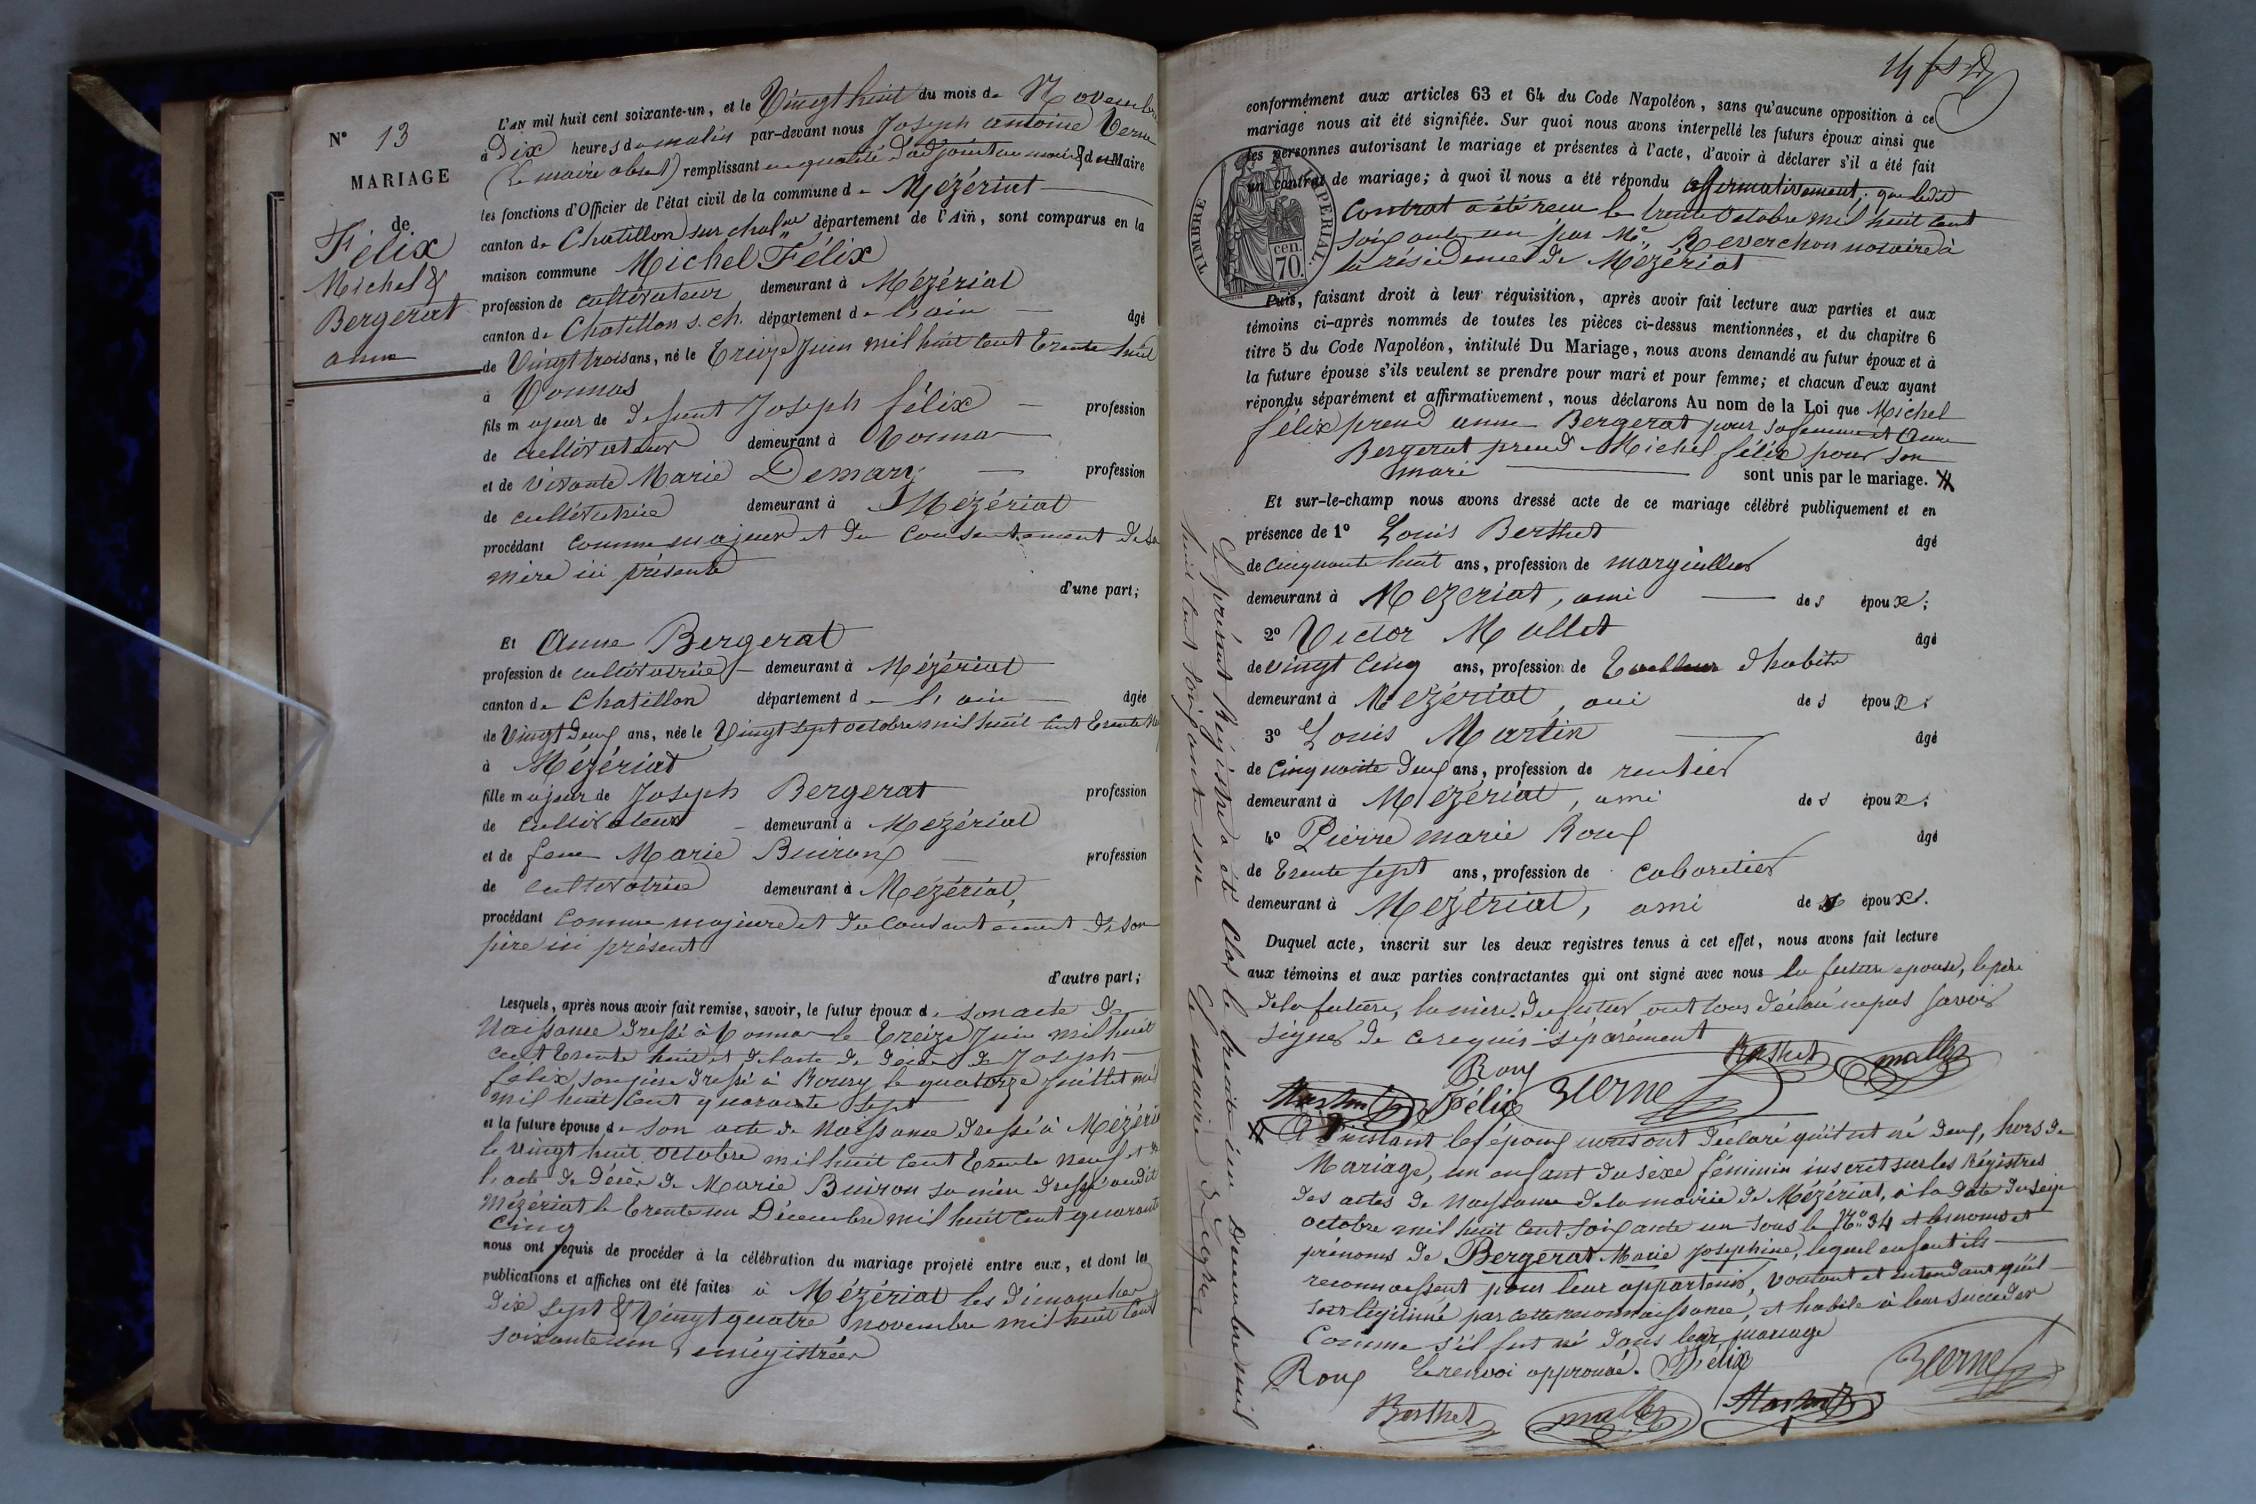 N° 13
MARIAGE
de
Félix
Michel &
Bergerat
anne
L'AN mil huit cent soixante-un, et le Vingt huit du mois de Novembre
à Dix heures du matin par-devant nous Joseph antoine Verne
(le maire absent) remplissant en qualité d'adjoint au maire Maire
les fonctions d'Officier de l'état civil de la commune de Mézériat
canton de Chatillon sur chal.ne département de l'Ain, sont comparus en la
maison commune Michel Félix
profession de cultivateur demeurant à Mézériat
canton de Chatillon s. ch. département de l'ain âgé
de Vingt trois ans, né le Treize Juin mil huit cent trente huit
à Vonnas
fils majeur de defunt Joseph félix profession
de cultivateur demeurant à Vonnas
et de vivante Marie Demary profession
de cultivatrice demeurant à Mézériat
procédant comme majeur et du consentement de sa
mère ici présente
d'une part;
Et Anne Bergerat
profession de cultivatrice demeurant à Mézériat
canton de Chatillon département de l'ain âgée
de Vingt deux ans, née le Vingt sept octobre mil huit cent trente neuf
à Mézériat
fille majeur de Joseph Bergerat profession
de cultivateur demeurant à Mézériat
et de feue Marie Buiron profession
de cultivatrice demeurant à Mézériat,
procédant comme majeure et du consentement de son
père ici présent
d'autre part;
Lesquels, après nous avoir fait remise, savoir, le futur époux de son acte de
Naissance dressé à Vonnas le Treize Juin mil huit
cent trente huit et de l'acte de décès de Joseph
félix, son père dressé à le quatorze Juillet
mil huit cent quarante sept
et la future épouse de son acte de Naissance dressé à Mézériat
le vingt huit octobre mil huit cent trente neuf et de
l'acte de décès de Marie Buiron sa mère dressé audit
Mézériat le trente un Décembre mil huit cent quarante
cinq
nous ont requis de procéder à la célébration du mariage projeté entre eux, et dont les
publications et affiches ont été faites à Mézériat les dimanches
dix sept & Vingt quatre novembre mil huit cent
soixante un, enrégistrées
conformément aux articles 63 et 64 du Code Napoléon, sans qu'aucune opposition à ce
mariage nous ait été signifiée. Sur quoi nous avons interpellé les futurs époux ainsi que
les personnes autorisant le mariage et présentes à l'acte, d'avoir à déclarer s'il a été fait
un contrat de mariage; à quoi il nous a été répondu affirmativement, que ledit
contrat a été recu le trente Octobre mil huit cent
soixante un par Me Reverchon notaire à
la résidence de Mézériat
TIMBRE IMPERIAL
70 cen.
Puis, faisant droit à leur réquisition, après avoir fait lecture aux parties et aux
témoins ci-après nommés de toutes les pièces ci-dessus mentionnées, et du chapitre 6
titre 5 du Code Napoléon, intitulé Du Mariage, nous avons demandé au futur époux et à
la future épouse s'ils veulent se prendre pour mari et pour femme; et chacun d'eux ayant
répondu séparément et affirmativement, nous déclarons Au nom de la Loi que Michel
félix prend anne Bergerat pour sa femme et Anne
Bergerat prend Michel félix pour son
mari sont unis par le mariage.
Et sur-le-champ nous avons dressé acte de ce mariage célébré publiquement et en
présence de 1° Louis Berthet âgé
de cinquante huit ans, profession de marguillier
demeurant à Mézériat, ami des époux;
2° Victor Mallet âgé
de vingt cinq ans, profession de Tailleur d'habits
demeurant à Mézériat, ami des époux;
3° Louis Martin âgé
de cinquante deux ans, profession de rentier
demeurant à Mézériat, ami des époux;
4° Pierre marie Roux âgé
de Trente sept ans, profession de cabaretier
demeurant à Mézériat, ami des époux.
Duquel acte, inscrit sur les deux registres tenus à cet effet, nous avons fait lecture
aux témoins et aux parties contractantes qui ont signé avec nous la future épouse, le père
de la future, la mère du futur ont tous déclaré ne pas savoir
signer de ce requis séparément
Roux Berthet mallet
Martin Félix Verne
A l'instant les époux nous ont déclaré qu'il est né d'eux, hors de
Mariage, un enfant du sèxe féminin inscrit sur les Régistres
des actes de Naissance de la mairie de Mézériat, à la date du seize
octobre mil huit cent soixante un sous le N° 34 et les noms et
prénoms de Bergerat Marie Joséphine, lequel enfant ils
reconnaissent pour leur appartenir, voulant et entendant qu'il
soit légitimé par cette reconnaissance, et habile à leur succéder
comme s'il fut né dans leur mariage
Roux Le renvoi approuvé. Félix Verne
Berthet mallet Martin
Le présent Régistre a été clos le trente un Décembre mil
huit cent soixante un Le maire de Mézériat